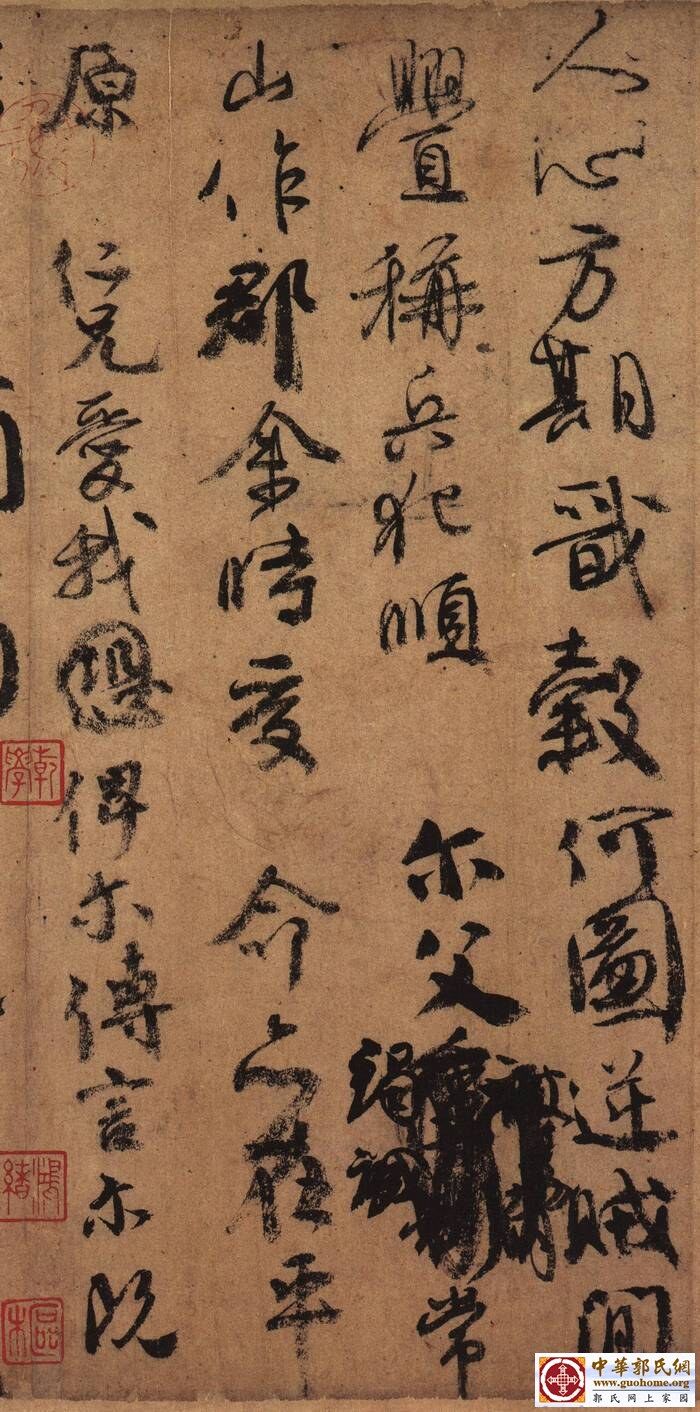 人心方期戩穀何圖逆賊閒
舋稱兵犯順 尔父竭誠常
山作郡余時受 命亦在平
原 仁兄愛我恐俾尔傳言尔既
乾學
鴻緒
中華郭氏網
www.guohome.org
郭氏网上家园